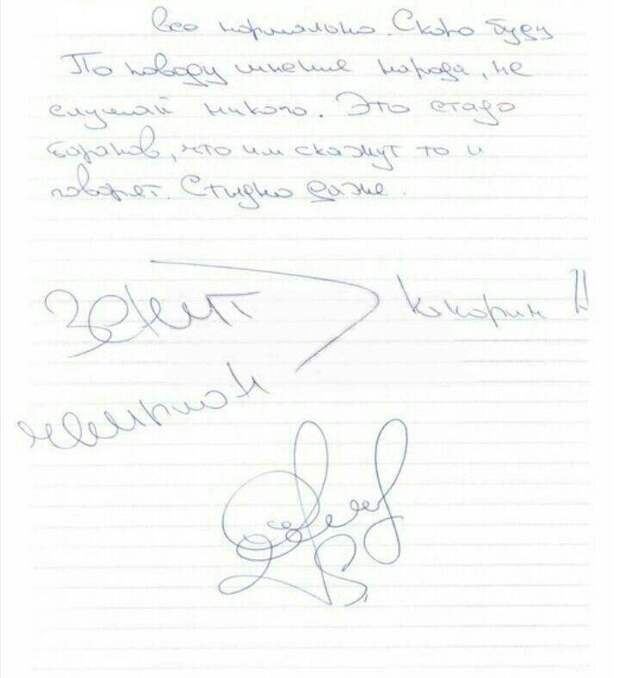 все нормально. Скоро буду
По поводу мнение народа, не
слушай никого. Это стадо
баранов, что им скажут то и
говорят. Стыдно даже.
Зенит
Кокорин А
чемпион